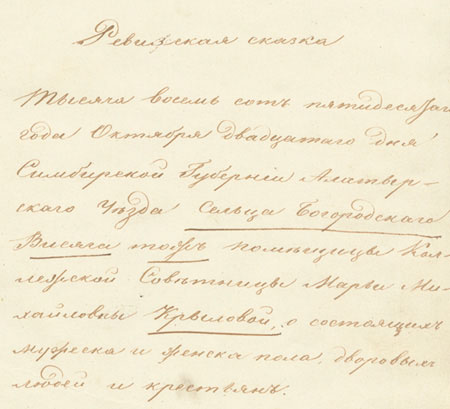 Ревизская сказка
Тысяча восемь сотъ пятидесятаго
года Октября двадцатаго дня
Симбирской Губерніи Алатыр-
скаго Уѣзда Сельца Богородскаго
Висяга тожъ помѣщицы Кол-
лежской Совѣтницы Марьи Ми-
хайловны Крыловой, о состоящихъ
мужеска и женска пола, дворовыхъ
людей и крестьянъ.